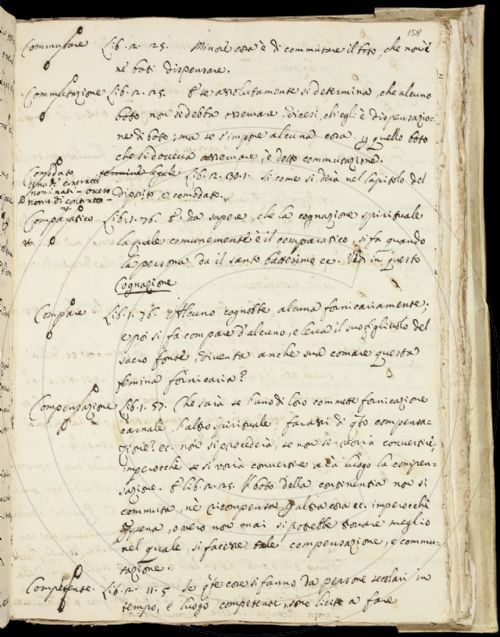 158
Commutare Lib. 2. 25. Minor cosa è di commutare il voto, che non è
ne' voti dispensare.
Commutazione Lib. 2. 25. E se assolutamente si determina, che alcuno
voto non si debba osservare, dicesi, ch'egli è dispensazio-
ne di voto; ma se s'impone alcuna cosa p quello voto
che si doveva osservare, è detto commutazione.
Comodato termine legale Lib. 2. 130. 1. si come si dirà nel capitolo del
diposito, e comodato.
nome di contratto
Comparatico Lib. 1. 76. E' da sapere, che la cognazione spirituale
la quale comunemente è il comparatico, si fa quando
la persona dà il santo battesimo ec. in questo
Cognazione
Compare Lib. 1. 76. Alcuno cognobbe alcuna fornicariamente,
e poi si fa compare d'alcuno, e leva il suo figliuolo del
sacro fonte, diventa anche sua comare questa
femina fornicaria?
Compensazione Lib. 1. 57. Che sarà se l'uno di loro commette fornicazione
carnale l'altro spirituale; farassi di qto compensa-
zione? ec. non si procederà, se non si vorrà convertire,
imperocchè se si vorrà convertire avrà luogo la compen-
sazione. E lib. 2. 25. Il voto della continentia non si
commuta, ne ricompensa p altra cosa ec. imperocchè
appena, o vero non mai si potrebbe trovare meglio
nel quale si facesse tale compensazione, e commu-
tazione.
Competente. Lib. 2. 11. 5 se qste cose si fanno da persone secolari in
tempo, e luogo competente, sono licite a fare